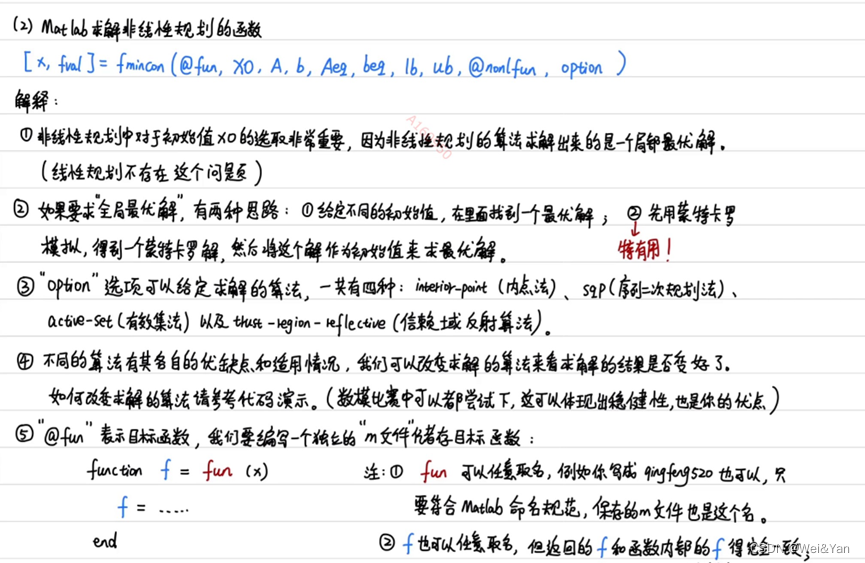 (2) Matlab求解非线性规划的函数
[x, fval] = fmincon(@fun, X0, A, b, Aeq, beq, lb, ub, @nonlfun, option)
解释:
①非线性规划中对于初始值X0的选取非常重要,因为非线性规划的算法求解出来的是一个局部最优解。
(线性规划不存在这个问题)
②如果要求"全局最优解",有两种思路:①给定不同的初始值,在里面找到一个最优解;②先用蒙特卡罗
模拟,得到一个蒙特卡罗解,然后将这个解作为初始值来求最优解。 特有用!
③"option"选项可以给定求解的算法,一共有四种:interior-point(内点法)、sqp(序列二次规划法)、
active-set(有效集法)以及trust-region-reflective(信赖域反射算法)。
④不同的算法有其各自的优缺点和适用情况,我们可以改变求解的算法来看求解的结果是否变好了。
如何改变求解的算法请参考代码演示。(数模比赛中可以都尝试下,这可以体现出稳健性,也是你的优点)
⑤"@fun"表示目标函数,我们要编写一个独立的"m文件"储存目标函数:
function f = fun(x) 注:①fun可以任意取名,例如你写成qingfeng520也可以,只
f = ..... 要符合Matlab命名规范,保存的m文件也是这个名。
end ②f也可以任意取名,但返回的f和函数内部的f得完全一致;
CSDN @Wei&Yan